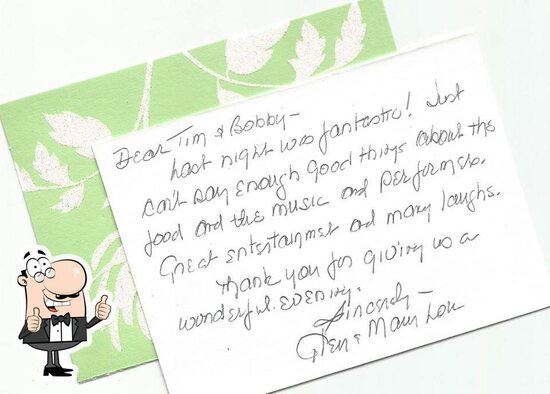 Dear Tim & Bobby —
Last night was fantastic! Just
can't say enough good things about the
food and the music and performers.
Great entertainment and many laughs.
Thank you for giving us a
wonderful evening.
Sincerely —
Glen & Mary Lou